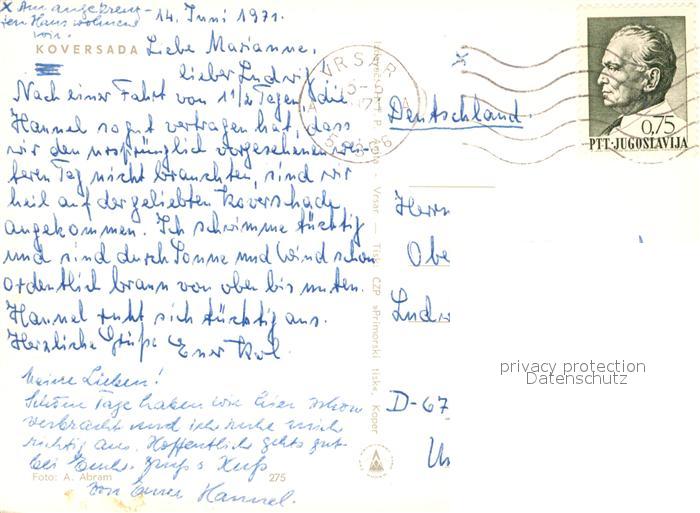 x Am angekreuz-
ten Haus wohnen
wir.
14. Juni 1971.
KOVERSADA
Liebe Marianne,
lieber Ludwig,
Nach einer Fahrt von 1 1/2 Tagen, die
Hannel so gut vertragen hat, dass
wir den ursprünglich vorgesehenen wei-
teren Tag nicht brauchten, sind wir
heil auf der geliebten Koverschade
angekommen. Ich schwimme tüchtig
und sind durch Sonne und Wind schon
ordentlich braun von oben bis unten.
Hannel ruht sich tüchtig aus.
Herzliche Grüße Euer Kol.
Meine Lieben!
Schöne Tage haben wir hier schon
verbracht und ich ruhe mich
richtig aus. Hoffentlich gehts gut
bei Euch. Gruß u Kuß
von Eurer Hannel.
Foto: A. Abram
275
Vrsar — Tisk ČZP »Primorski tisk«, Koper
VRSAR
x
Deutschland
0,75
PTT-JUGOSLAVIJA
Herrn
Obe
Ludw
D-67
privacy protection
Datenschutz